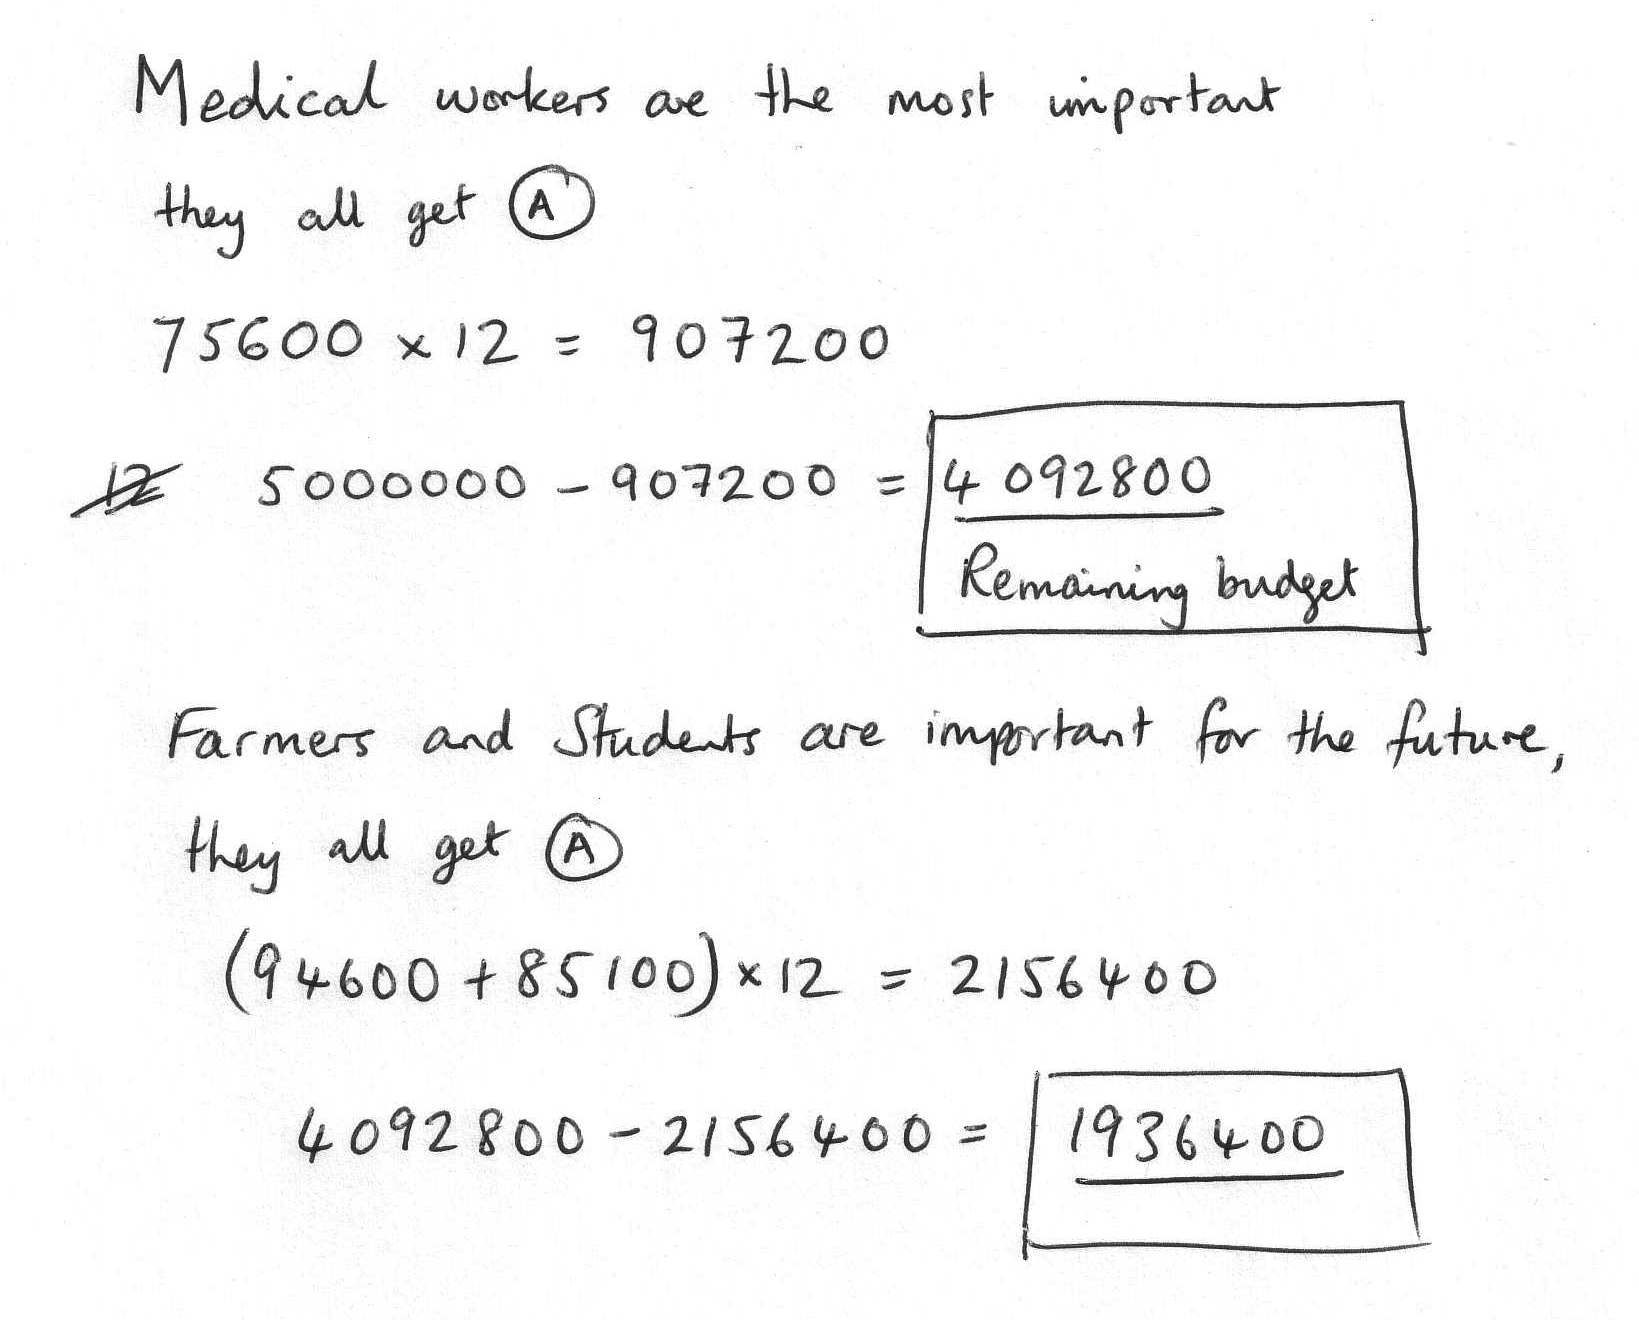 Medical workers are the most important
they all get A
75600 × 12 = 907200
12 5000000 - 907200 = 4092800
Remaining budget
Farmers and Students are important for the future,
they all get A
(94600 + 85100) × 12 = 2156400
4092800 - 2156400 = 1936400